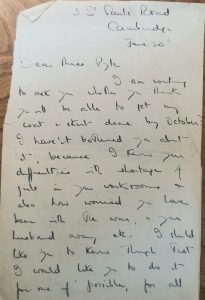 3 St Pauls Road
Cambridge
June 20th
Dear Miss Pyle
I am writing
to ask you whether you think
you will be able to get my
coat & skirt done by October?
I haven't bothered you about
it, because I know your
difficulties with shortage of
girls in your workrooms &
also how worried you have
been with the war, & your
husband away etc. I should
like you to know though that
I would like you to do it
for me if possible, for all